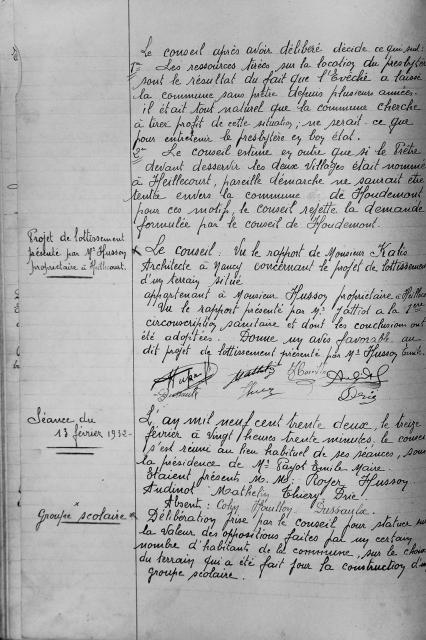 Le conseil après avoir délibéré décide ce qui suit:
1° Les ressources tirées sur la location du presbytère
sont le résultat du fait que l'Évêché a laissé
la commune sans prêtre depuis plusieurs années.
il était tout naturel que la commune cherche
à tirer profit de cette situation; ne serait-ce que
pour entretenir le presbytère en bon état.
2° Le conseil estime en outre que si le Prêtre
devant desservir les deux villages était nommé
à Heillecourt, pareille démarche ne saurait être
tentée envers la commune de Houdemont
pour ces motifs, le conseil rejette la demande
formulée par le conseil de Houdemont.
Projet de lottissement
présenté par Mr Husson
propriétaire à Heillecourt.
Le conseil: Vu le rapport de Monsieur Kalis
Architecte à Nancy concernant le projet de lottissement
d'un terrain situé
appartenant à Monsieur Husson propriétaire à Heillec
Vu le rapport présenté par Mr a la 1ère
circonscription sanitaire et dont les conclusions ont
été adoptées. Donne un avis favorable au
dit projet de lottissement présenté par Mr Husson Emile.
Séance du
13 février 1932-
L'an mil neuf cent trente deux, le treize
février à vingt heures trente minutes, le conseil
s'est réuni au lieu habituel de ses séances, sous
la présidence de Mr Payot Emile Maire.
Etaient présents M. M. Royer Husson
Audinot Mathelin Thiery
Absent:
Groupe scolaire
Délibération prise par le conseil pour statuer sur
la valeur des oppositions faites par un certain
nombre d'habitants de la commune, sur le choix
du terrain qui a été fait pour la construction d'un
groupe scolaire.